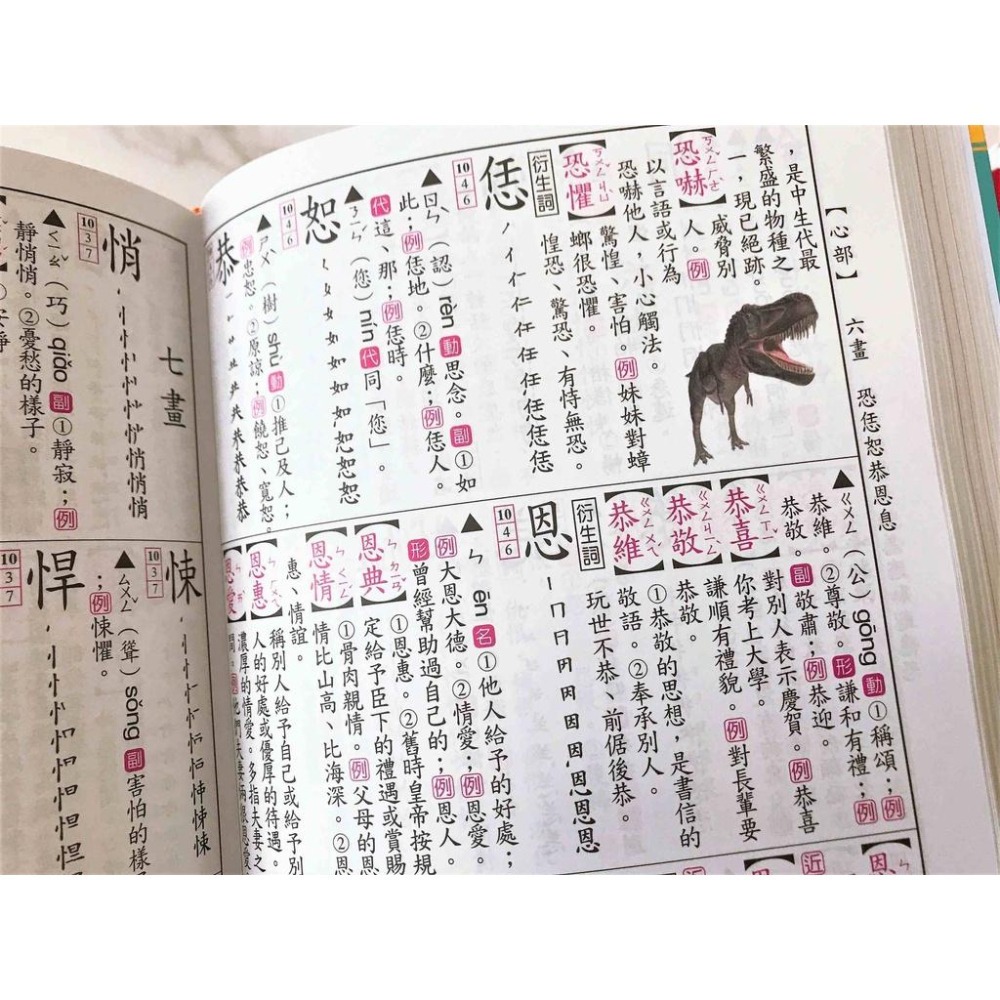 【心部】 六畫 恐恁恕恭恩息
，是中生代最
繁盛的物種之
一，現已絕跡。
【恐嚇】ㄎㄨㄥˇ ㄏㄜˋ 威脅別
人。例
以言語或行為
恐嚇他人，小心觸法。
【恐懼】ㄎㄨㄥˇ ㄐㄩˋ 驚惶、害怕。例妹妹對蟑
螂很恐懼。
衍生詞 惶恐、驚恐、有恃無恐。
恁 恁恁恁
10 4 6
▲ㄖㄣˋ（認）rèn 動思念。副①如
此；例恁地。②什麼；例恁人。
代這、那；例恁時。
▲ㄋㄧㄣˊ（您）nín 代同「您」。
恕 恕恕恕
10 4 6
▲ㄕㄨˋ（樹）shù 動①推己及人；
例忠恕。②原諒；例饒恕、寬恕。
恭 恭恭恭
▲ㄍㄨㄥ（公）gōng 動①稱頌；例
恭維。②尊敬。形謙和有禮；例
恭敬。副敬肅；例恭迎。
【恭喜】ㄍㄨㄥ ㄒㄧˇ 對別人表示慶賀。例恭喜
你考上大學。
【恭敬】ㄍㄨㄥ ㄐㄧㄥˋ 謙順有禮貌。例對長輩要
恭敬。
【恭維】ㄍㄨㄥ ㄨㄟˊ ①恭敬的思想，是書信的
敬語。②奉承別人。
衍生詞 玩世不恭、前倨後恭。
恩 恩恩恩
10 4 6
▲ㄣ ēn 名①他人給予的好處；
例大恩大德。②情愛；例恩愛。
形曾經幫助過自己的；例恩人。
【恩典】ㄣ ㄉㄧㄢˇ ①恩惠。②舊時皇帝按規
定給予臣下的禮遇或賞賜
【恩情】ㄣ ㄑㄧㄥˊ ①骨肉親情。例父母的恩
情比山高、比海深。②恩
惠、情誼。
【恩惠】 稱別人給予自己或給予別
人的好處或優厚的待遇。
濃厚的情愛。多指夫妻之
七畫
悄 悄悄悄
10 3 7
▲ㄑㄧㄠˇ（巧）qiǎo 副①靜寂；例
靜悄悄。②憂愁的樣子。
悚
10 3 7
▲ㄙㄨㄥˇ（聳）sǒng 副害怕的樣
；例悚懼。
悍
10 3 7